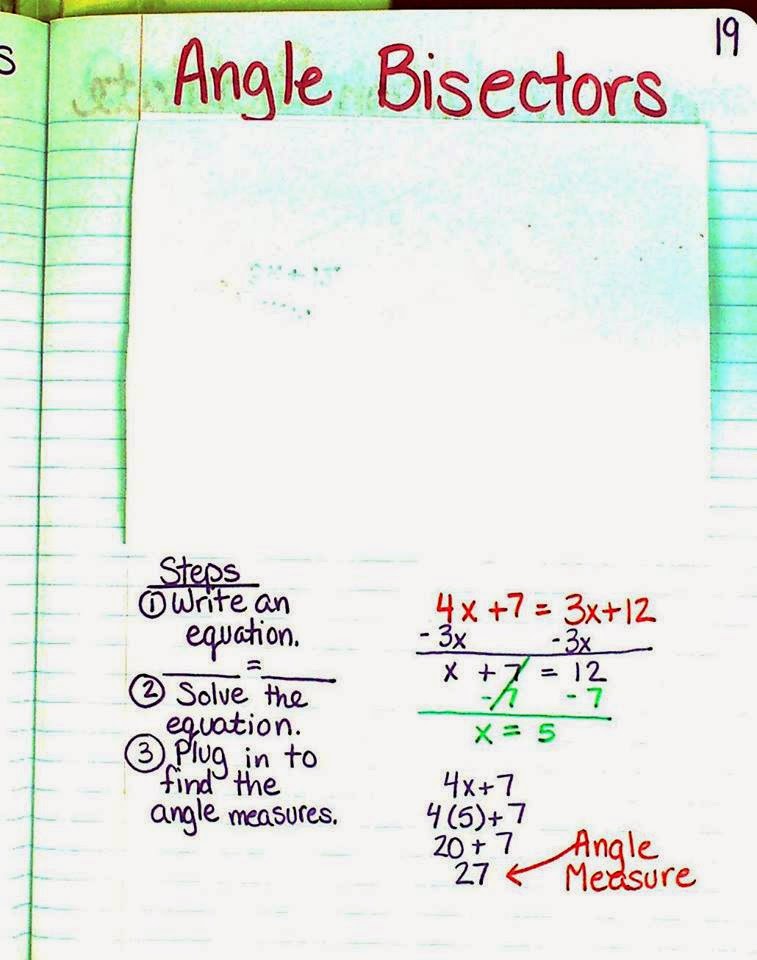 s
19
Angle Bisectors
Steps
① Write an
equation.
____ = ____
② Solve the
equation.
③ Plug in to
find the
angle measures.
4x + 7 = 3x + 12
- 3x -3x
x + 7 = 12
- 7 - 7
x = 5
4x + 7
4(5) + 7
20 + 7
27
Angle
Measure